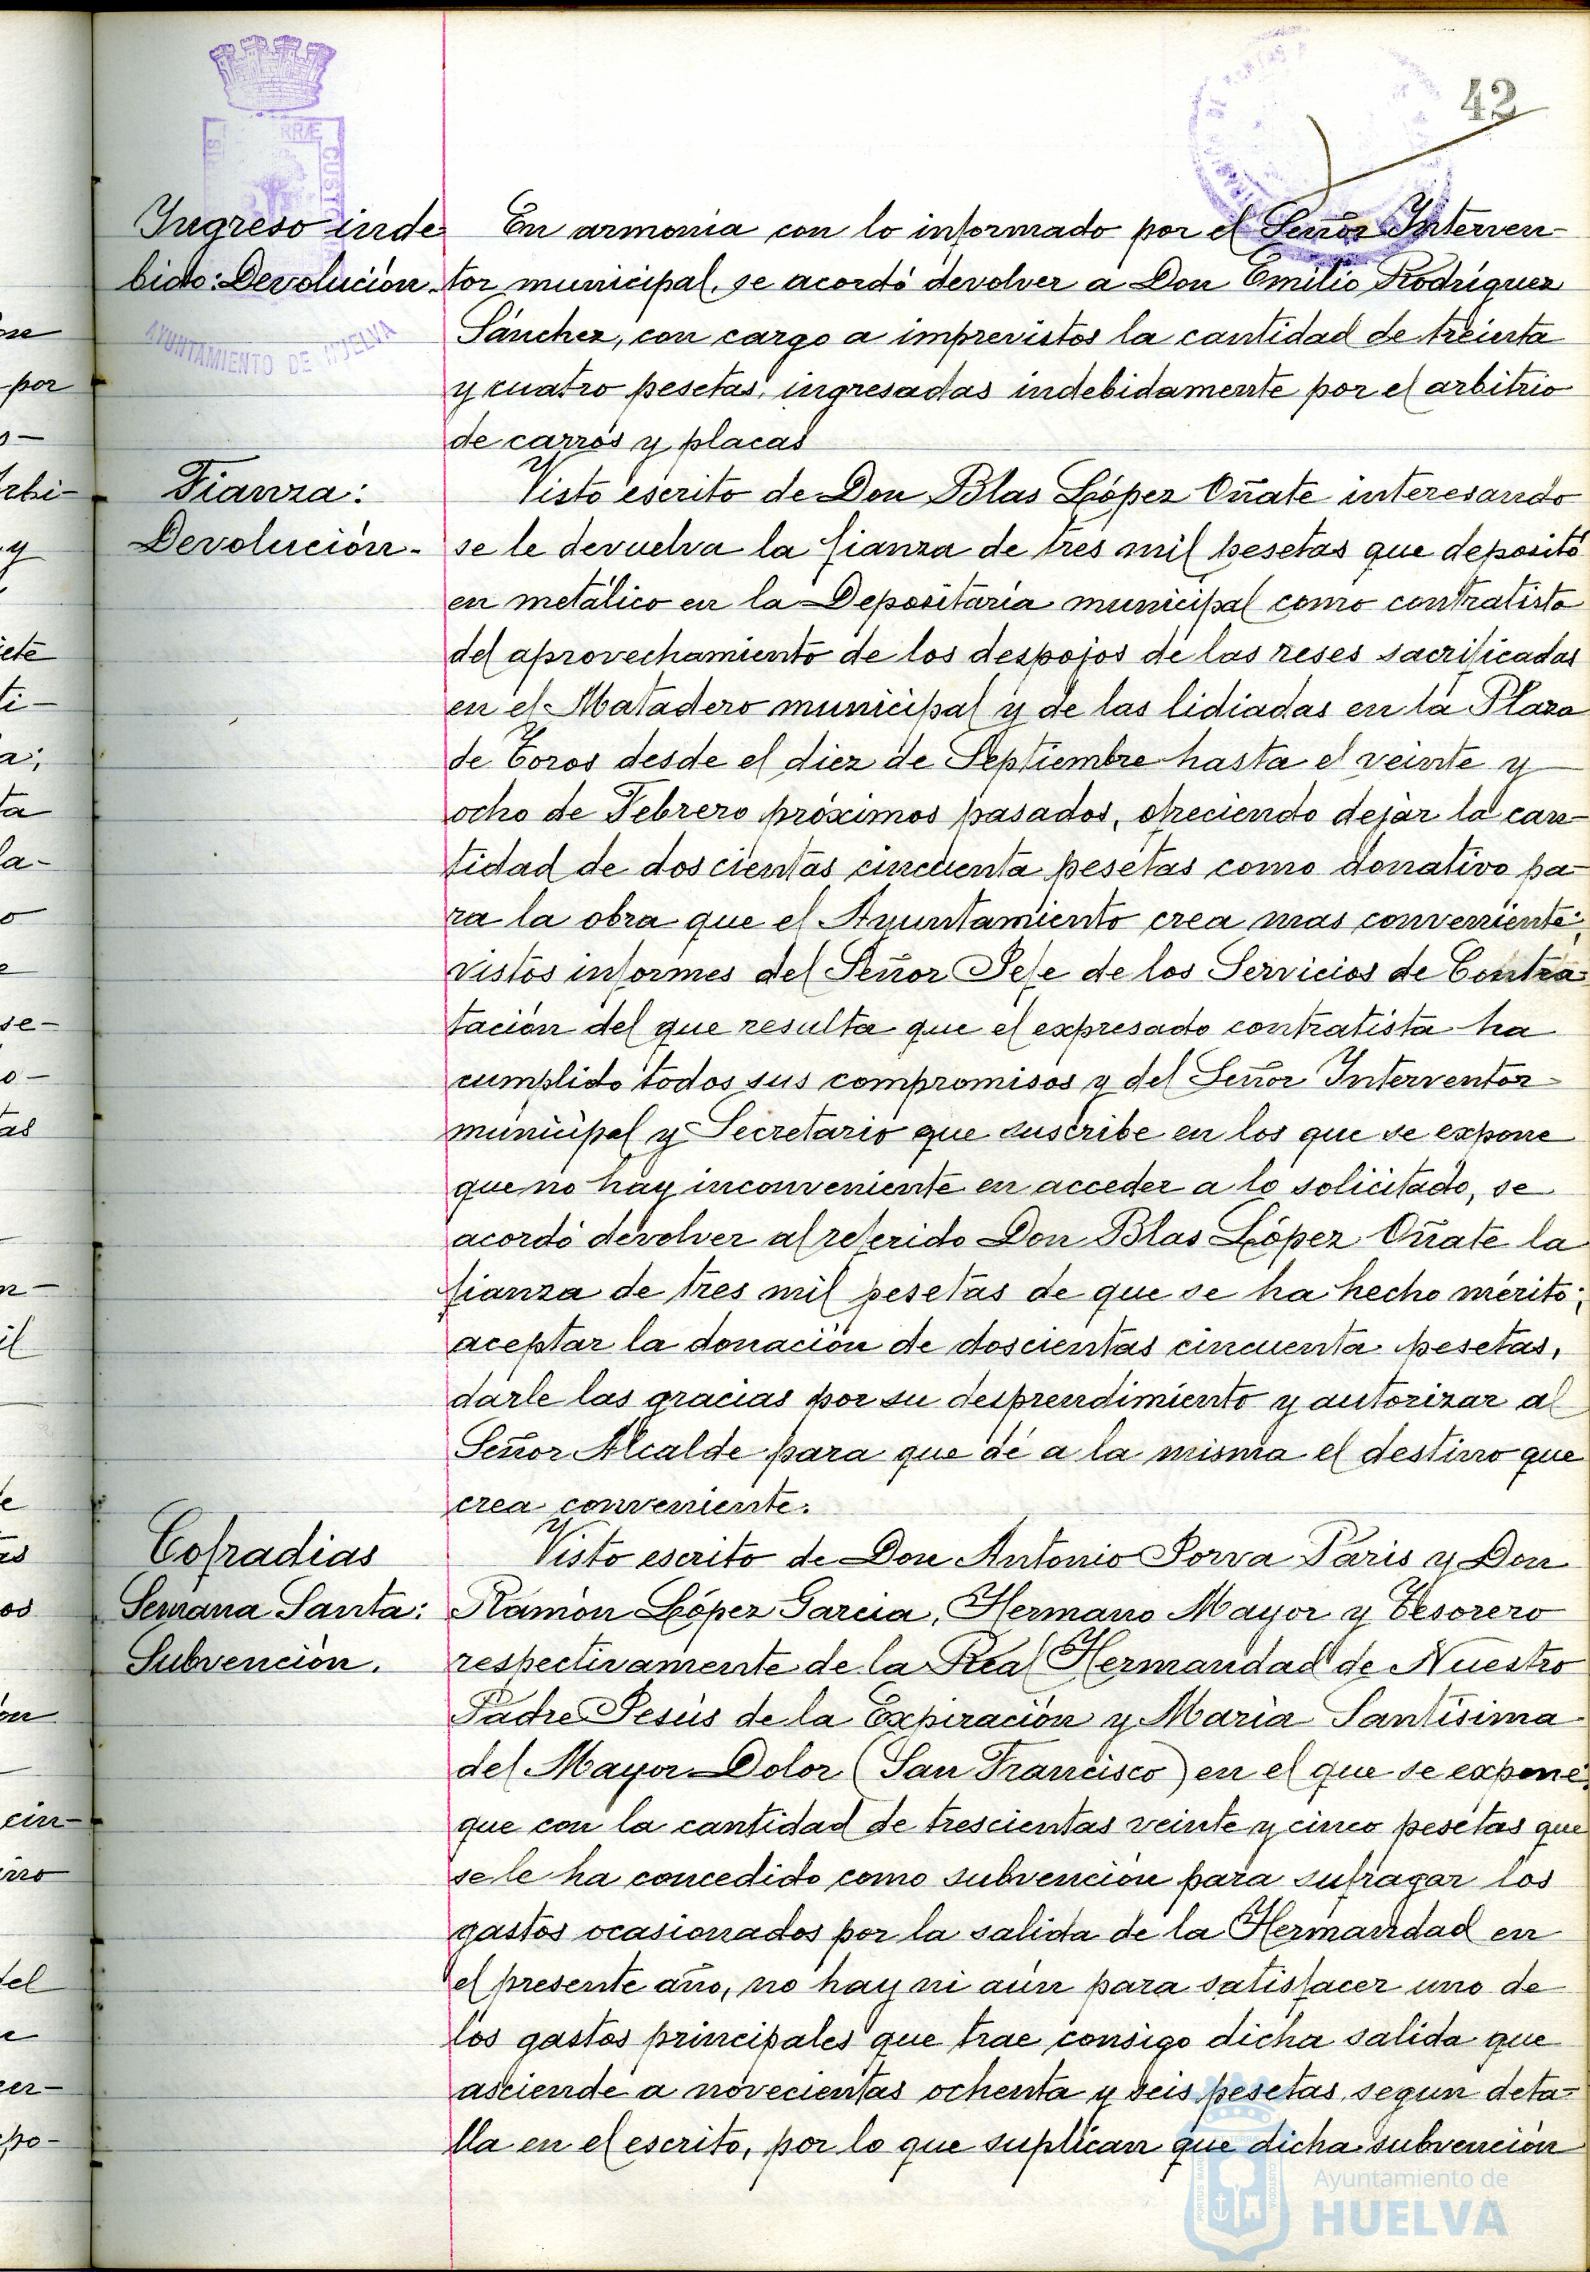 42
Ingreso inde
bido: Devolución.
En armonia con lo informado por el Señor Interven-
tor municipal, se acordó devolver a Don Emilio Rodríguez
Sánchez, con cargo a imprevistos la cantidad de treinta
y cuatro pesetas, ingresadas indebidamente por el arbitrio
de carros y placas
Fianza:
Devolución.
Visto escrito de Don Blas López Oñate interesando
se le devuelva la fianza de tres mil pesetas que depositó
en metálico en la Depositaría municipal como contratista
del aprovechamiento de los despojos de las reses sacrificadas
en el Matadero municipal y de las lidiadas en la Plaza
de Toros desde el diez de Septiembre hasta el veinte y
ocho de Febrero próximos pasados, ofreciendo dejar la can-
tidad de doscientas cincuenta pesetas como donativo pa-
ra la obra que el Ayuntamiento crea mas conveniente;
vistos informes del Señor Jefe de los Servicios de Contra-
tación del que resulta que el expresado contratista ha
cumplido todos sus compromisos y del Señor Interventor
municipal y Secretario que suscribe en los que se expone
que no hay inconveniente en acceder a lo solicitado, se
acordó devolver al referido Don Blas López Oñate la
fianza de tres mil pesetas de que se ha hecho mérito;
aceptar la donación de doscientas cincuenta pesetas,
darle las gracias por su desprendimiento y autorizar al
Señor Alcalde para que dé a la misma el destino que
crea conveniente.
Cofradias
Semana Santa:
Subvención.
Visto escrito de Don Antonio Jorva Paris y Don
Ramón López Garcia, Hermano Mayor y Tesorero
respectivamente de la Real Hermandad de Nuestro
Padre Jesús de la Expiración y María Santísima
del Mayor Dolor (San Francisco) en el que se expone
que con la cantidad de trescientas veinte y cinco pesetas que
se le ha concedido como subvención para sufragar los
gastos ocasionados por la salida de la Hermandad en
el presente año, no hay ni aún para satisfacer uno de
los gastos principales que trae consigo dicha salida que
asciende a novecientas ochenta y seis pesetas, segun deta-
lla en el escrito, por lo que suplican que dicha subvención
AYUNTAMIENTO DE HUELVA
Ayuntamiento de
HUELVA